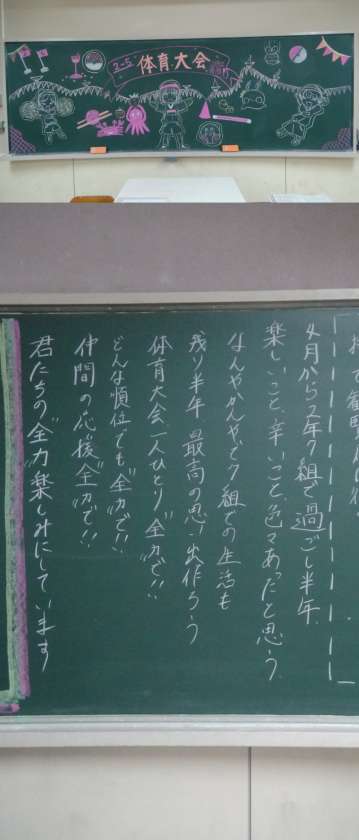 2-5
体育大会
4月から2年7組で過ごし半年、
楽しいこと、辛いこと、色々あったと思う。
なんやかんやで7組での生活も
残り半年、最高の思い出作ろう
体育大会、一人ひとり"全力で"!!
どんな順位でも"全力で"!!
仲間の応援"全力で"!!
君たちの"全力"楽しみにしています